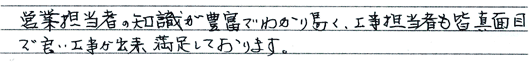 営業担当者の知識が豊富でわかり易く、工事担当者も皆真面目
で言い工事が出来満足しております。